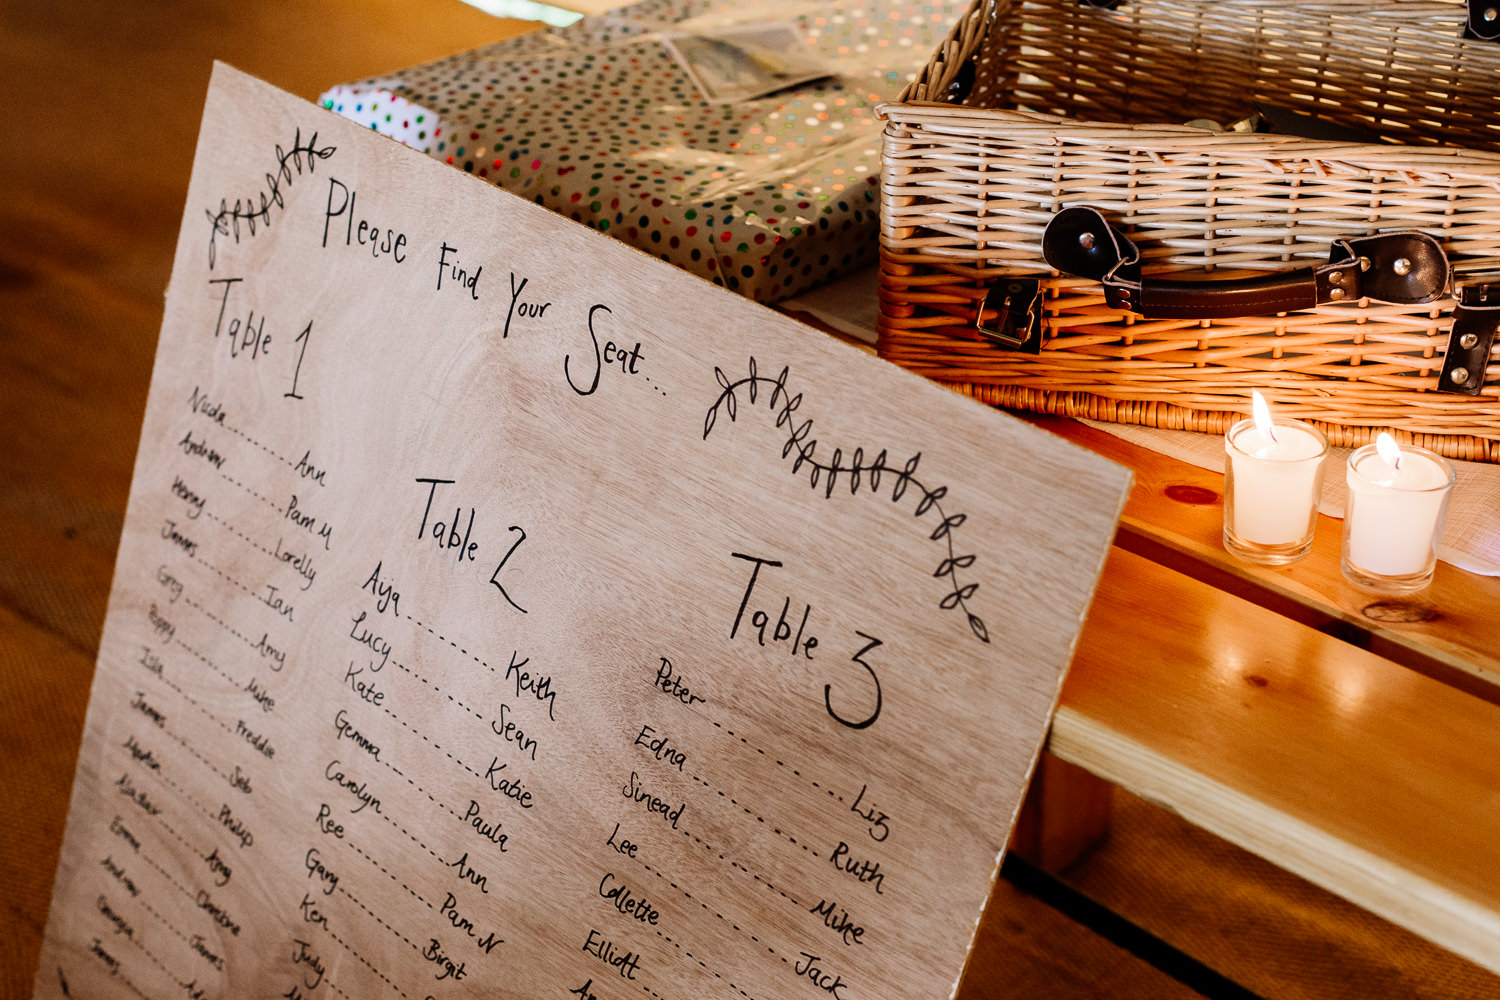 Please Find Your Seat...
Table 1
Nicola........Ann
Andrew........Pam M
Henry........Lorelly
James........Ian
Greg........Amy
Poppy........Mike
Isla........Freddie
James........Seb
Martin........Philip
Alistair........Amy
Emma........Christine
Andrew........James
Georgia
James
Table 2
Aija........Keith
Lucy........Sean
Kate........Katie
Gemma........Paula
Carolyn........Ann
Ree........Pam N
Gary........Birgit
Ken
Judy
Table 3
Peter........Liz
Edna........Ruth
Sinead........Mike
Lee........Jack
Collette
Elliott